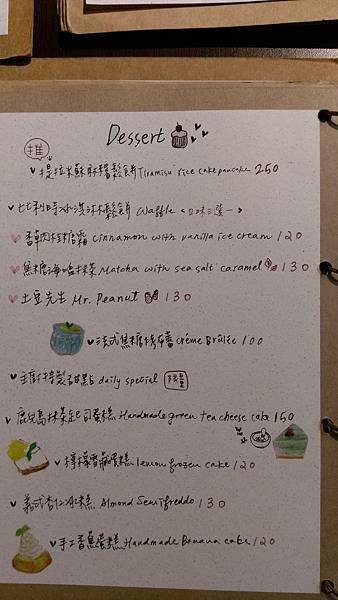 Dessert
推
提拉米蘇麻糬鬆餅 Tiramisu rice cake pancake 250
比利時冰淇淋鬆餅 Waffle <口味三選一>
香草肉桂糖霜 cinnamon with vanilla ice cream 120
焦糖海鹽抹茶 Matcha with sea salt caramel 130
土豆先生 Mr. Peanut 130
法式焦糖烤布蕾 crème Brûlée 100
主廚特製甜點 daily special 限量
鹿兒島抹茶起司蛋糕 Handmade green tea cheese cake 150
檸檬雪融蛋糕 lemon frozen cake 120
義式杏仁冰糕 Almond Semifreddo 130
手工香蕉蛋糕 Handmade Banana cake 120